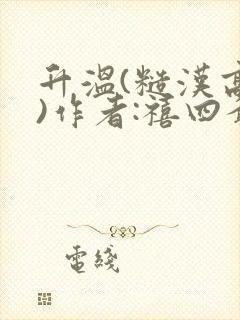 升溫(糙漢高
)作者:禧四
電綫